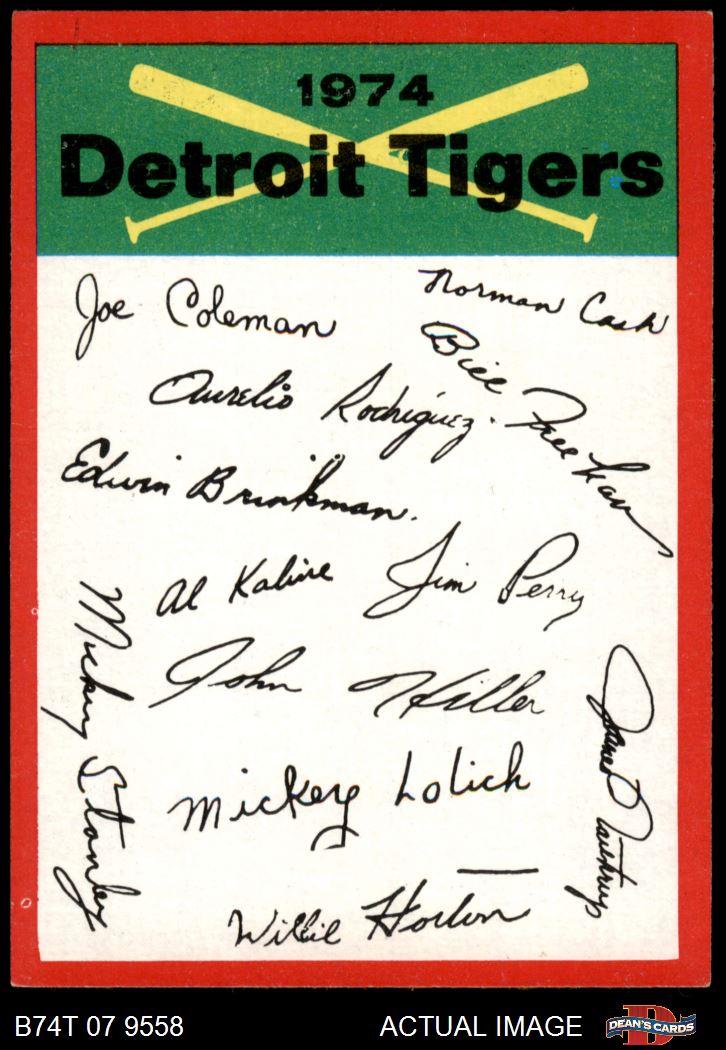 1974
Detroit Tigers
Joe Coleman
Norman Cash
Bill Freehan
Aurelio Rodriguez.
Edwin Brinkman.
Al Kaline
Jim Perry
Mickey Stanley
John Hiller
James Northrup
Mickey Lolich
Willie Horton
B74T 07 9558
ACTUAL IMAGE
D
DEAN'S CARDS